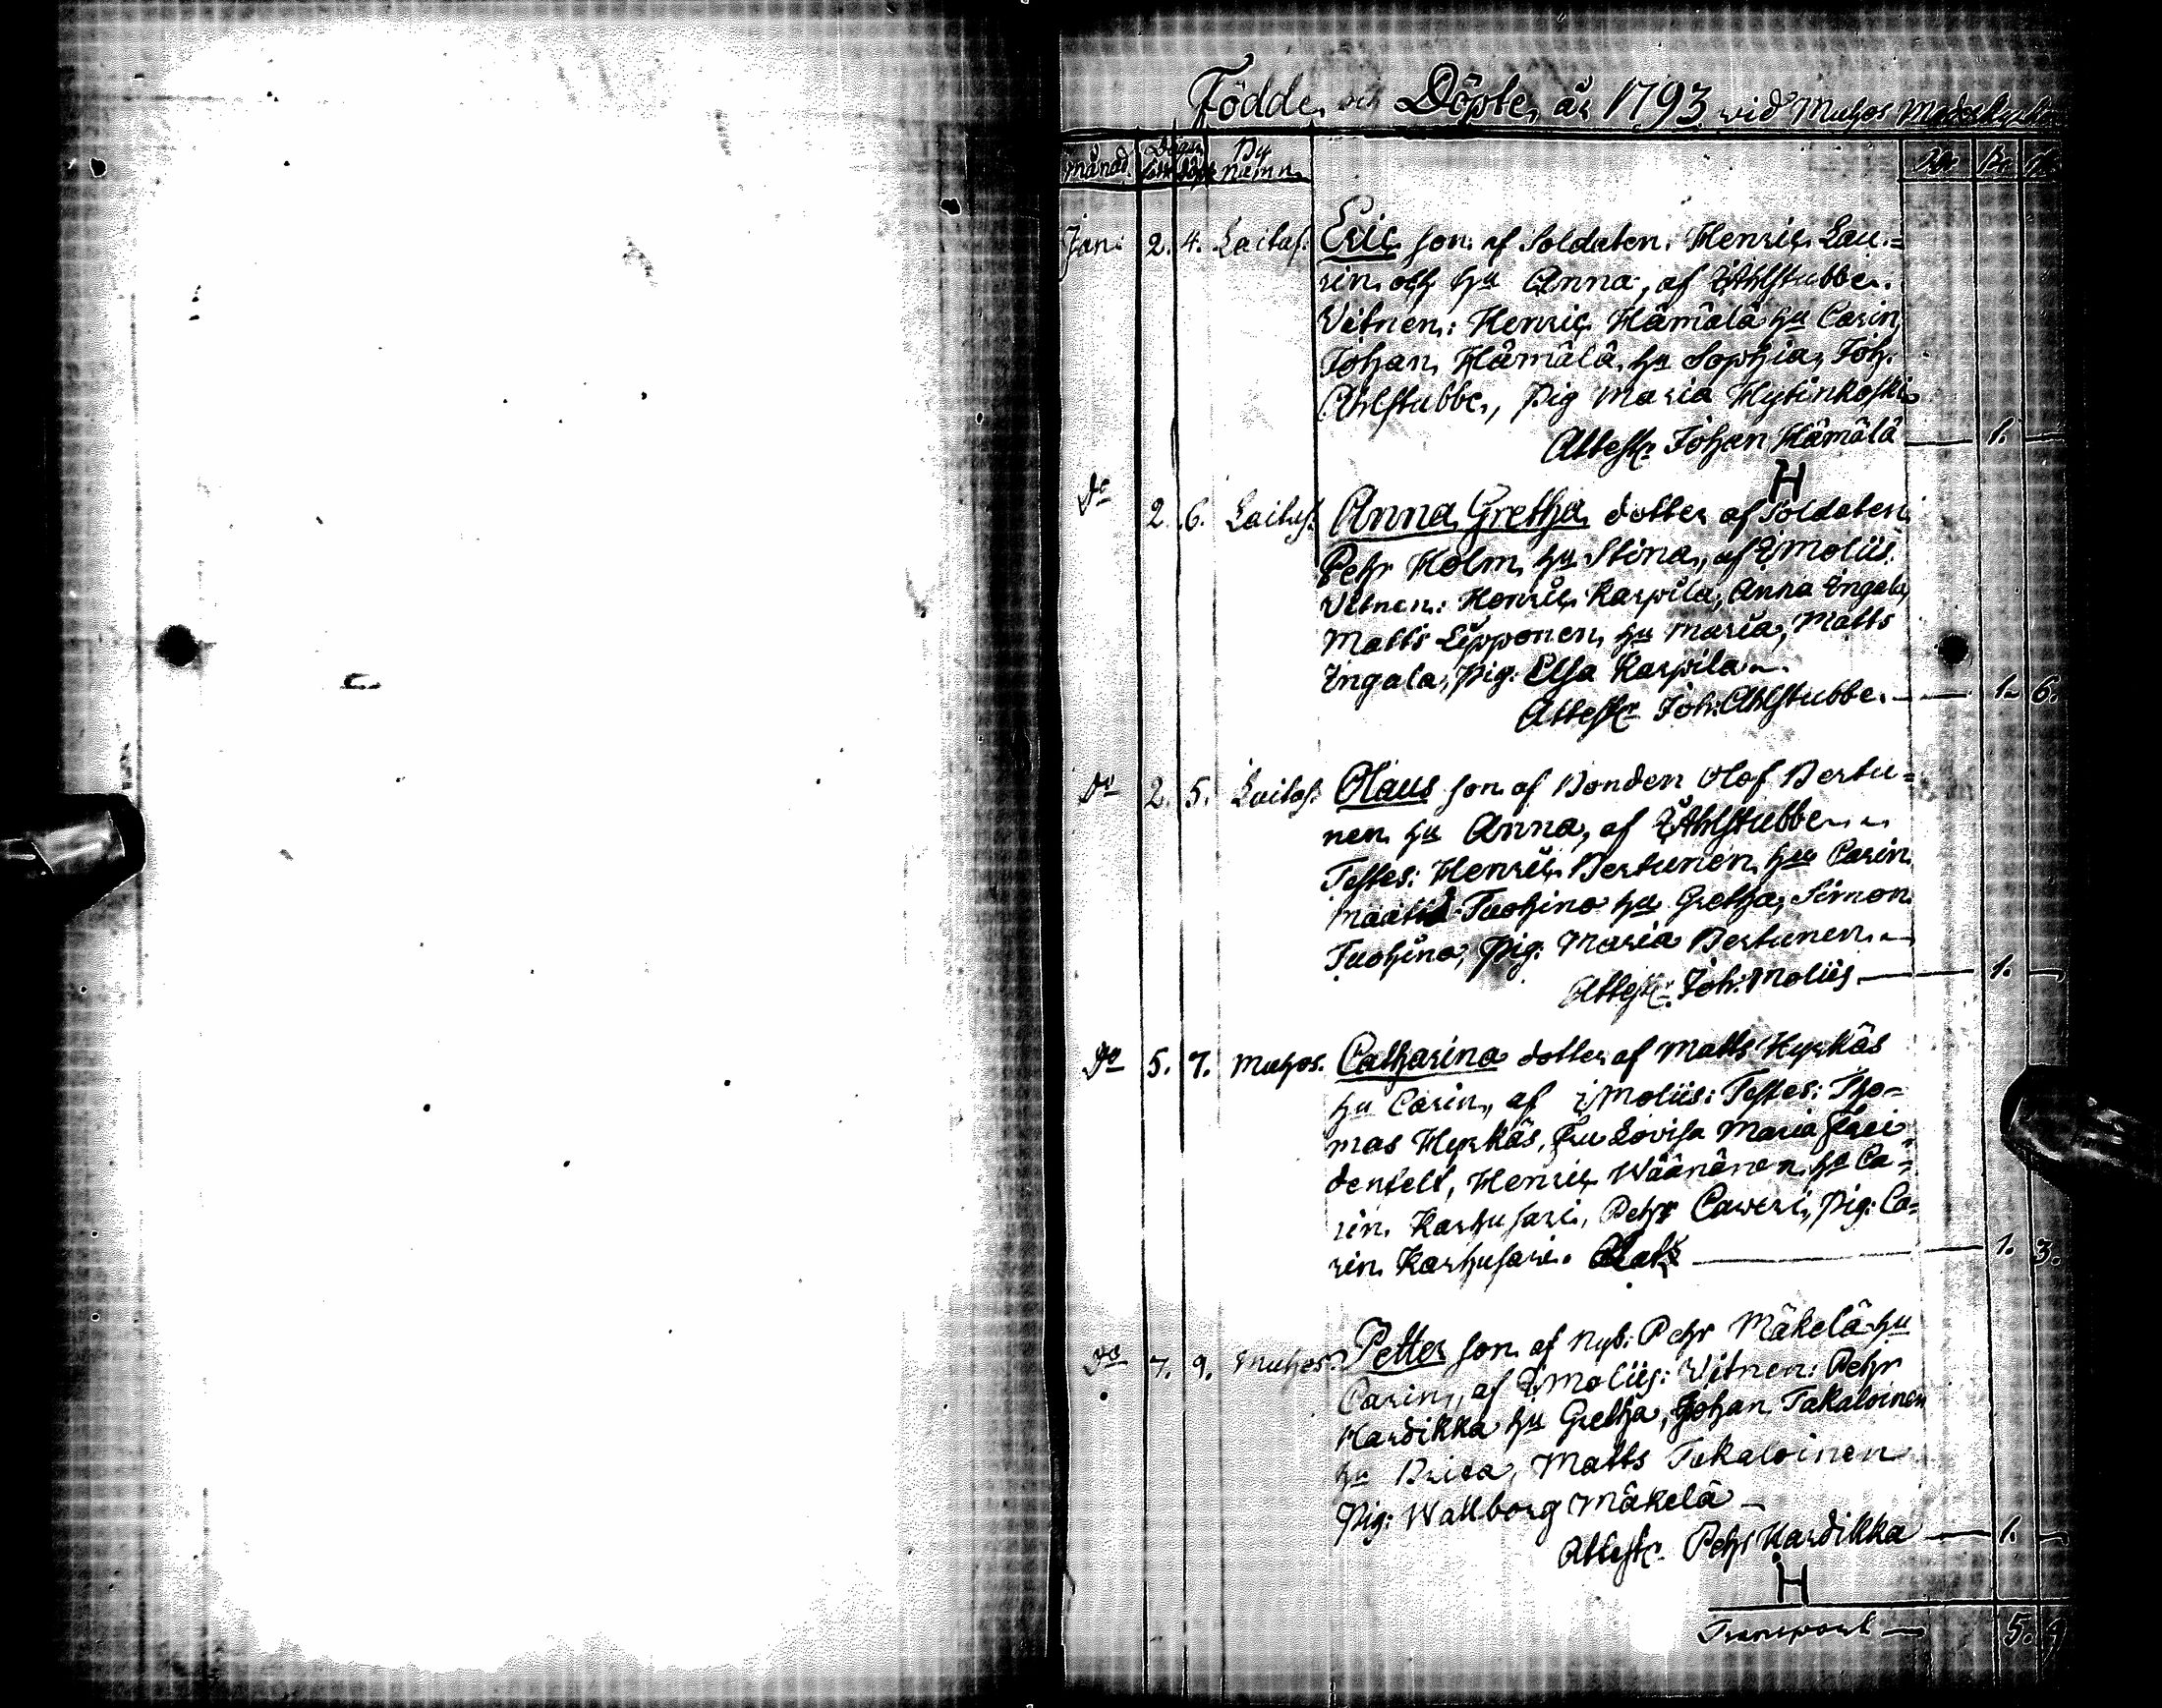 Födde och Döpte år 1793 wid Muhos Moderkyrka
månad. Dagen född döpt By namn.
Jan: 2. 4. Laitas. Eric son af Soldaten Henric Lau=
rin och hu Anna, af Ahlstubbe.
Vitnen: Henric Hämälä hu Carin,
Johan Hämälä hu Sophia, Joh:
Ahlstubbe, Pig Maria Hytinkoski
Attest: Johan Hämälä — 1. —
H
Do 2. 6. Laitas. Anna Gretha dotter af Soldaten
Pehr Holm hu Stina, af Moliis.
Vitnen: Henric Karpila, Anna Ingala,
Matts Lipponen hu Maria, Matts
Ingala, Pig: Elsa Karpila.
Attest: Joh: Ahlstubbe. — 1. 6.
Do 2. 5. Laitas. Olaus son af Bonden Olof Bertu=
nen hu Anna, af Ahlstubbe
Testes: Henric Bertunen hu Carin
Matts Tuohino hu Gretha, Simon
Tuohino, Pig: Maria Bertunen.
Attest: Joh: Moliis — 1. —
Do 5. 7. Muhos. Catharina dotter af Matts Hyrkäs
hu Carin, af Moliis: Testes: Tho=
mas Hyrkäs, Fru Lovisa Maria Frei
denfelt, Henric Wäänänen hu Ca=
rin Karhusari, Pehr Caweri, Pig: Ca=
rin Karhusari. — 1. 3.
Do 7. 9. Muhos. Petter son af Nyb: Pehr Mäkelä hu
Carin, af Moliis: Vitnen: Pehr
Hardikka hu Gretha, Johan Takaloinen
hu Brita, Matts Takaloinen
Pig: Wallborg Mäkelä —
Attest: Pehr Hardikka — 1. —
H
Transport — 5. 9